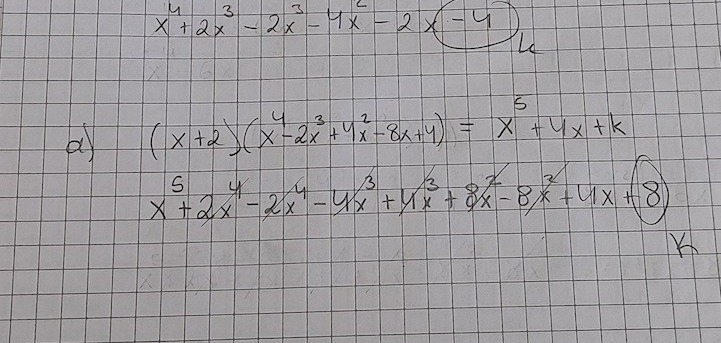 x⁴ + 2x³ - 2x³ - 4x² - 2x - 4
k
a) (x+2)(x⁴-2x³+4x²-8x+4) = x⁵ + 4x + k
x⁵ + 2x⁴ - 2x⁴ - 4x³ + 4x³ + 8x² - 8x² + 4x + 8
K